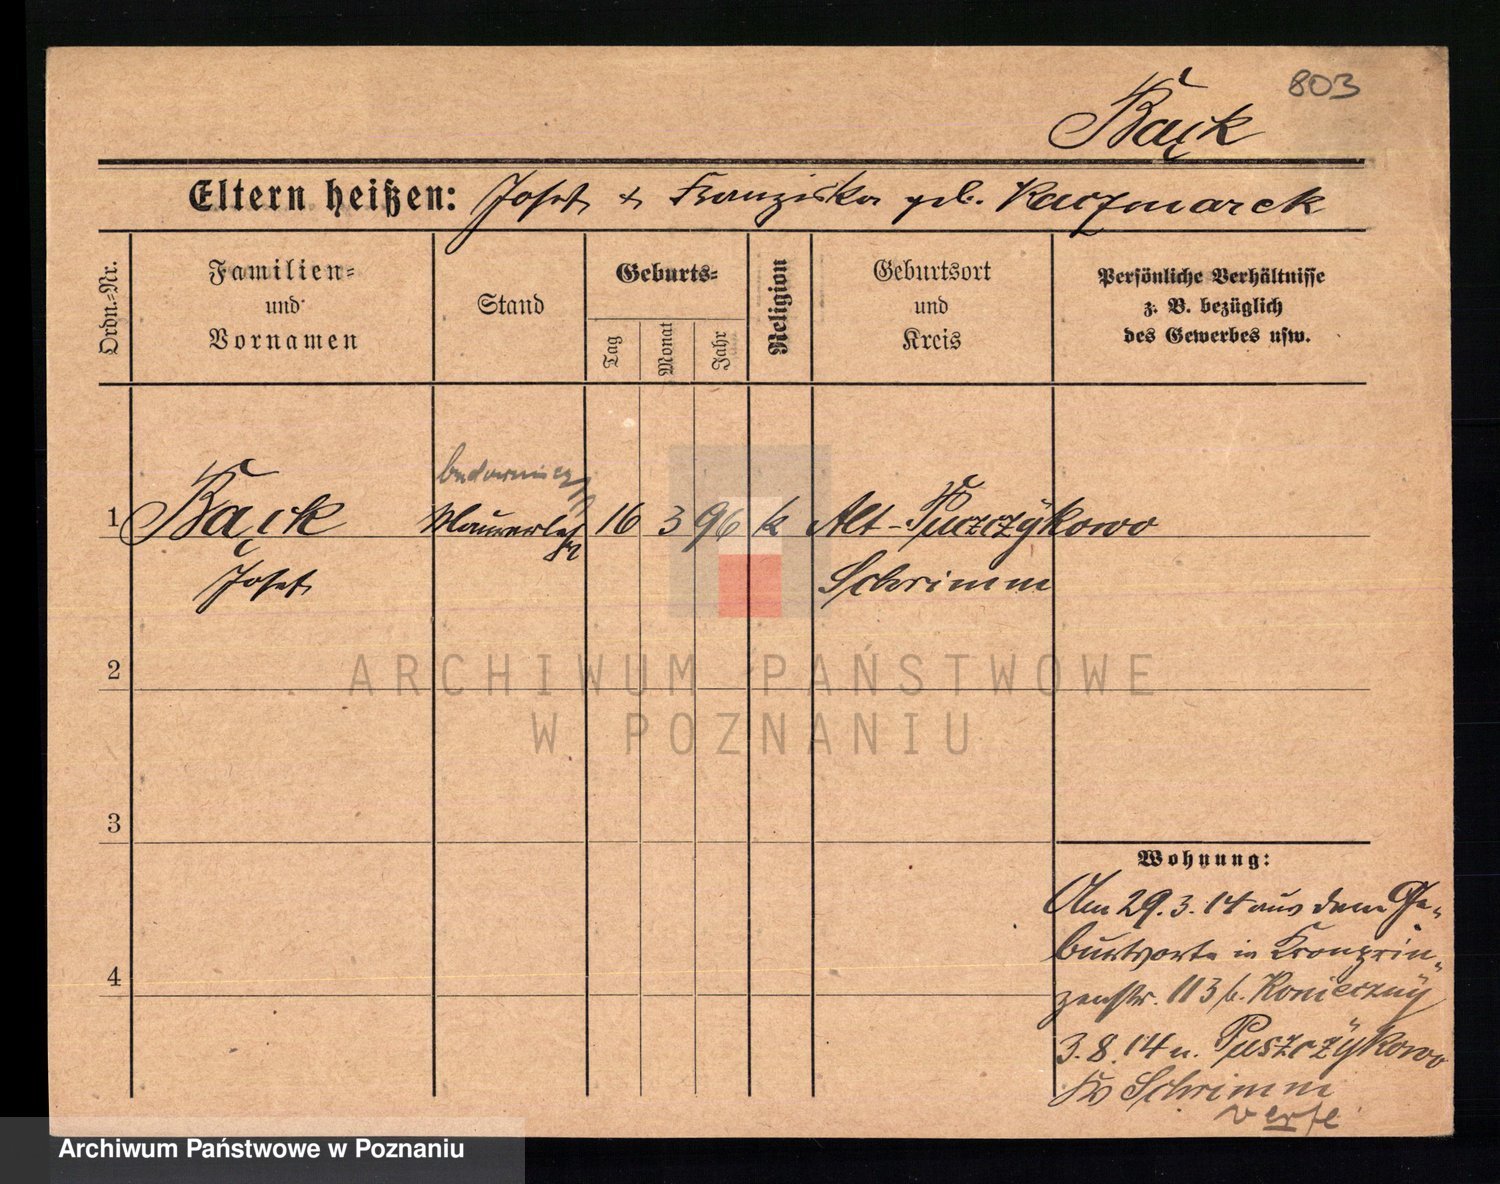 803
Bąck
Eltern heißen: Josef + Franziska geb. Kaczmarek
Ordn.-Nr.
Familien-
und
Vornamen
Stand
Geburts-
Tag
Monat
Jahr
Religion
Geburtsort
und
Kreis
Persönliche Verhältnisse
z. B. bezüglich
des Gewerbes usw.
budowniczy
1 Bąck Maurerlehr 16 3 96 k Alt-Puszczykowo
Josef Schrimm
2
3
4
Wohnung:
Am 29.3.14 aus dem Ge-
burtsorte in Kronprin-
zenstr. 113 b. Konieczny
3.8.14 n. Puszczykowo
Kr Schrimm
ARCHIWUM PAŃSTWOWE
W POZNANIU
Archiwum Państwowe w Poznaniu